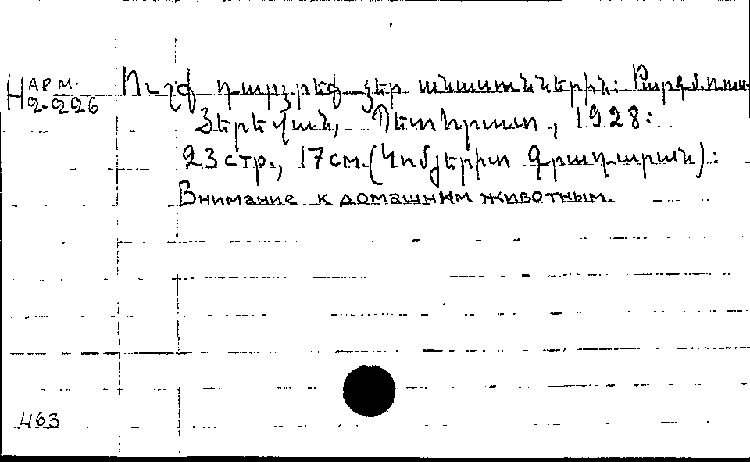 Н АРМ. 2-226
Ուշք դարձրեք ձեր անասուններին: Թարգմ. ռուս.
Յերեվան, Պետհրատ., 1928:
23 стр., 17 см. (Կոմյերիտ Գրադարան):
Внимание к домашним животным.
463